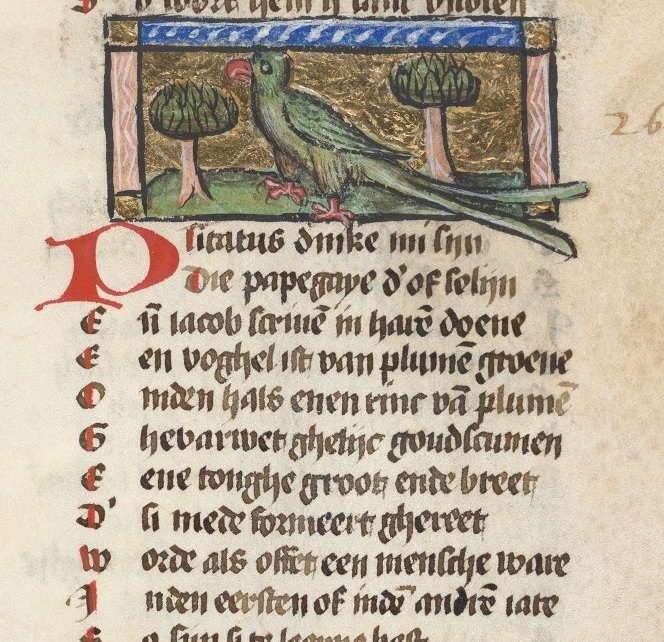 Psitatus dinke mi sijn
Die papegaye d'of selijn
En̄ iacob scriuē in harē doene
Een voghel ist van plumē groene
Omden hals enen rinc vā plumē
Ghevarwet ghelijc goudscumen
Eene tonghe groot ende breet
D' si mede formeert ghereet
Worde als offet een mensche ware
Inden eersten of indē andrē iare
26